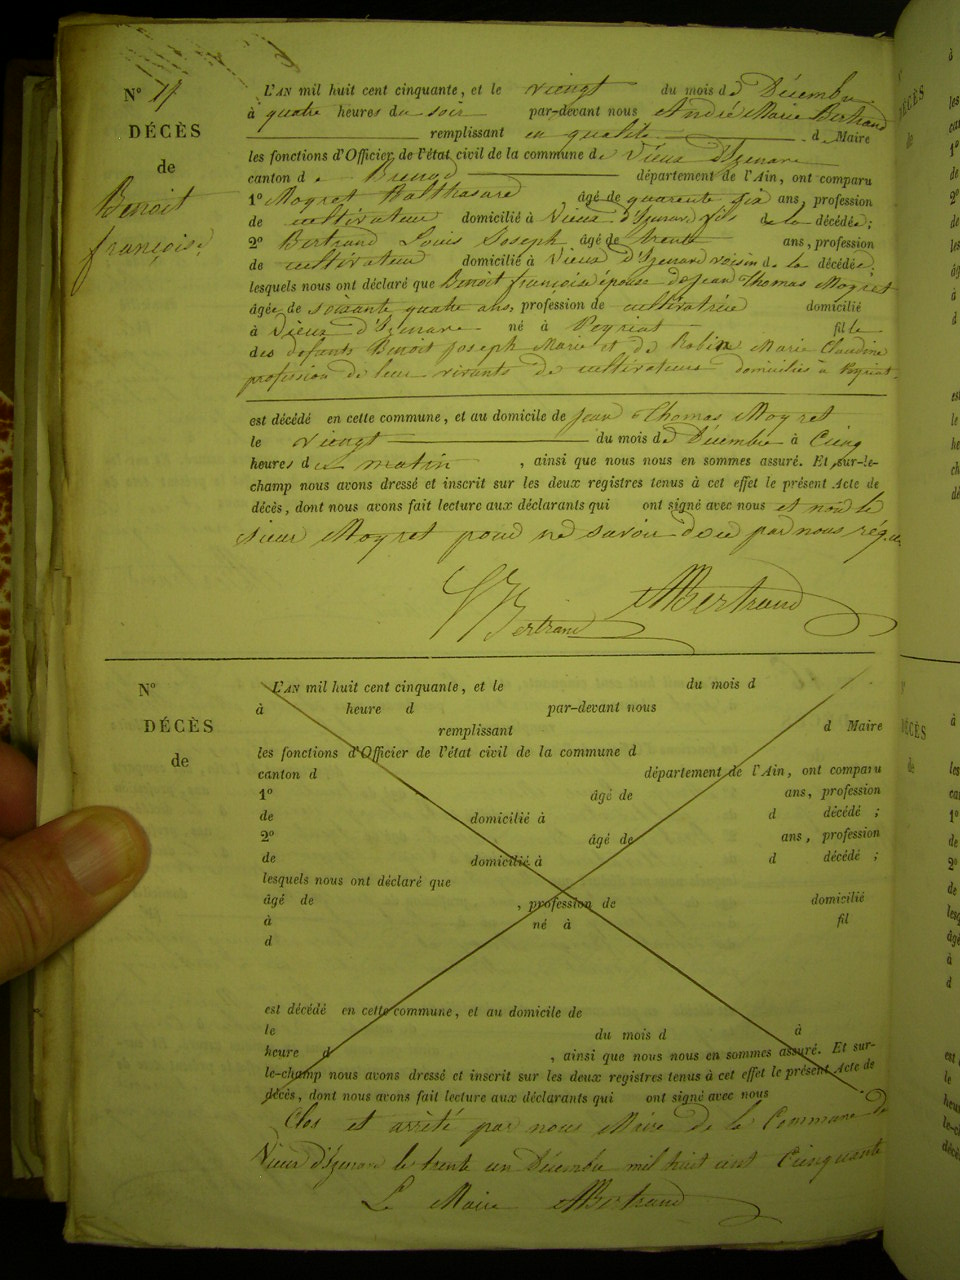 N° 17
DÉCÈS
de
Benoit
françoise
L'AN mil huit cent cinquante, et le viengt du mois de Décembre
à quatre heures du soir par-devant nous André Marie Bertrand
remplissant en qualité d Maire
les fonctions d'Officier de l'état civil de la commune de Vieux d'Izenave
canton d Brenod département de l'Ain, ont comparu
1° Moyret Balthasard, âgé de quarente six ans, profession
de cultivateur domicilié à Vieux d'Izenave fils de la décédée;
2° Bertrand Louis Joseph âgé de trente ans, profession
de cultivateur domicilié à Vieux d'Izenave voisin de la décédée;
lesquels nous ont déclaré que Benoit françoise épouse de Jean Thomas Moyret
âgée de soixante quatre ans, profession de cultivatrice domicilié
à Vieux d'Izenave né à Peyriat fille
des defunts Benoit Joseph Marie et de Robin Marie Claudine
profession de leur vivants de cultivateurs domiciliés à Peyriat
est décédé en cette commune, et au domicile de Jean Thomas Moyret
le viengt du mois de Décembre à Cinq
heures du matin, ainsi que nous nous en sommes assuré. Et sur-le-
champ nous avons dressé et inscrit sur les deux registres tenus à cet effet le présent Acte de
décès, dont nous avons fait lecture aux déclarants qui ont signé avec nous et non le
sieur Moyret pour ne savoir de ce par nous réquis
L Bertrand AMBertrand
N°
DÉCÈS
de
L'AN mil huit cent cinquante, et le du mois d
à heure d par-devant nous
remplissant d Maire
les fonctions d'Officier de l'état civil de la commune d
canton d département de l'Ain, ont comparu
1° âgé de ans, profession
de domicilié à d décédé ;
2° âgé de ans, profession
de domicilié à d décédé ;
lesquels nous ont déclaré que
âgé de , profession de domicilié
à né à fil
d
est décédé en cette commune, et au domicile de
le du mois d à
heure d , ainsi que nous nous en sommes assuré. Et sur-
le-champ nous avons dressé et inscrit sur les deux registres tenus à cet effet le présent Acte de
décès, dont nous avons fait lecture aux déclarants qui ont signé avec nous
Clos et arrêté par nous Maire de la Commune de
Vieux d'Izenave le trente un Décembre mil huit cent Cinquante
Le Maire AMBertrand